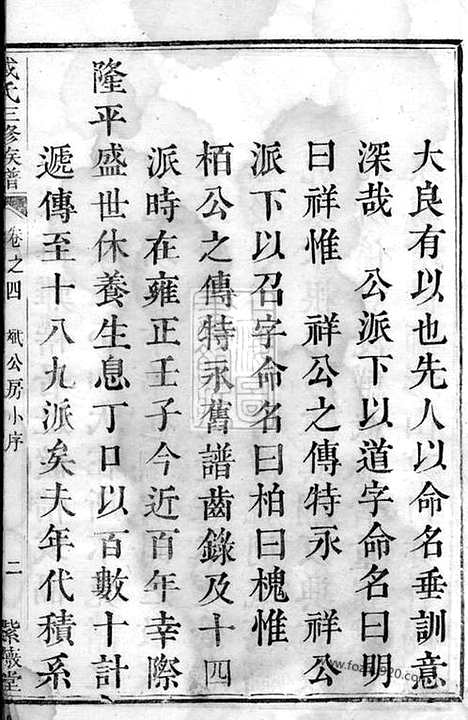 大良有以也先人以命名垂訓意
深哉　公派下以道字命名曰明
曰祥惟　祥公之傳特永　祥公
派下以召字命名曰柏曰槐惟
栢公之傳特永舊譜齒錄及十四
派時在雍正壬子今近百年幸際
隆平盛世休養生息丁口以百數十計
遞傳至十八九派矣夫年代積系
成氏三修族譜　卷之四　斌公房小序　二　紫薇堂